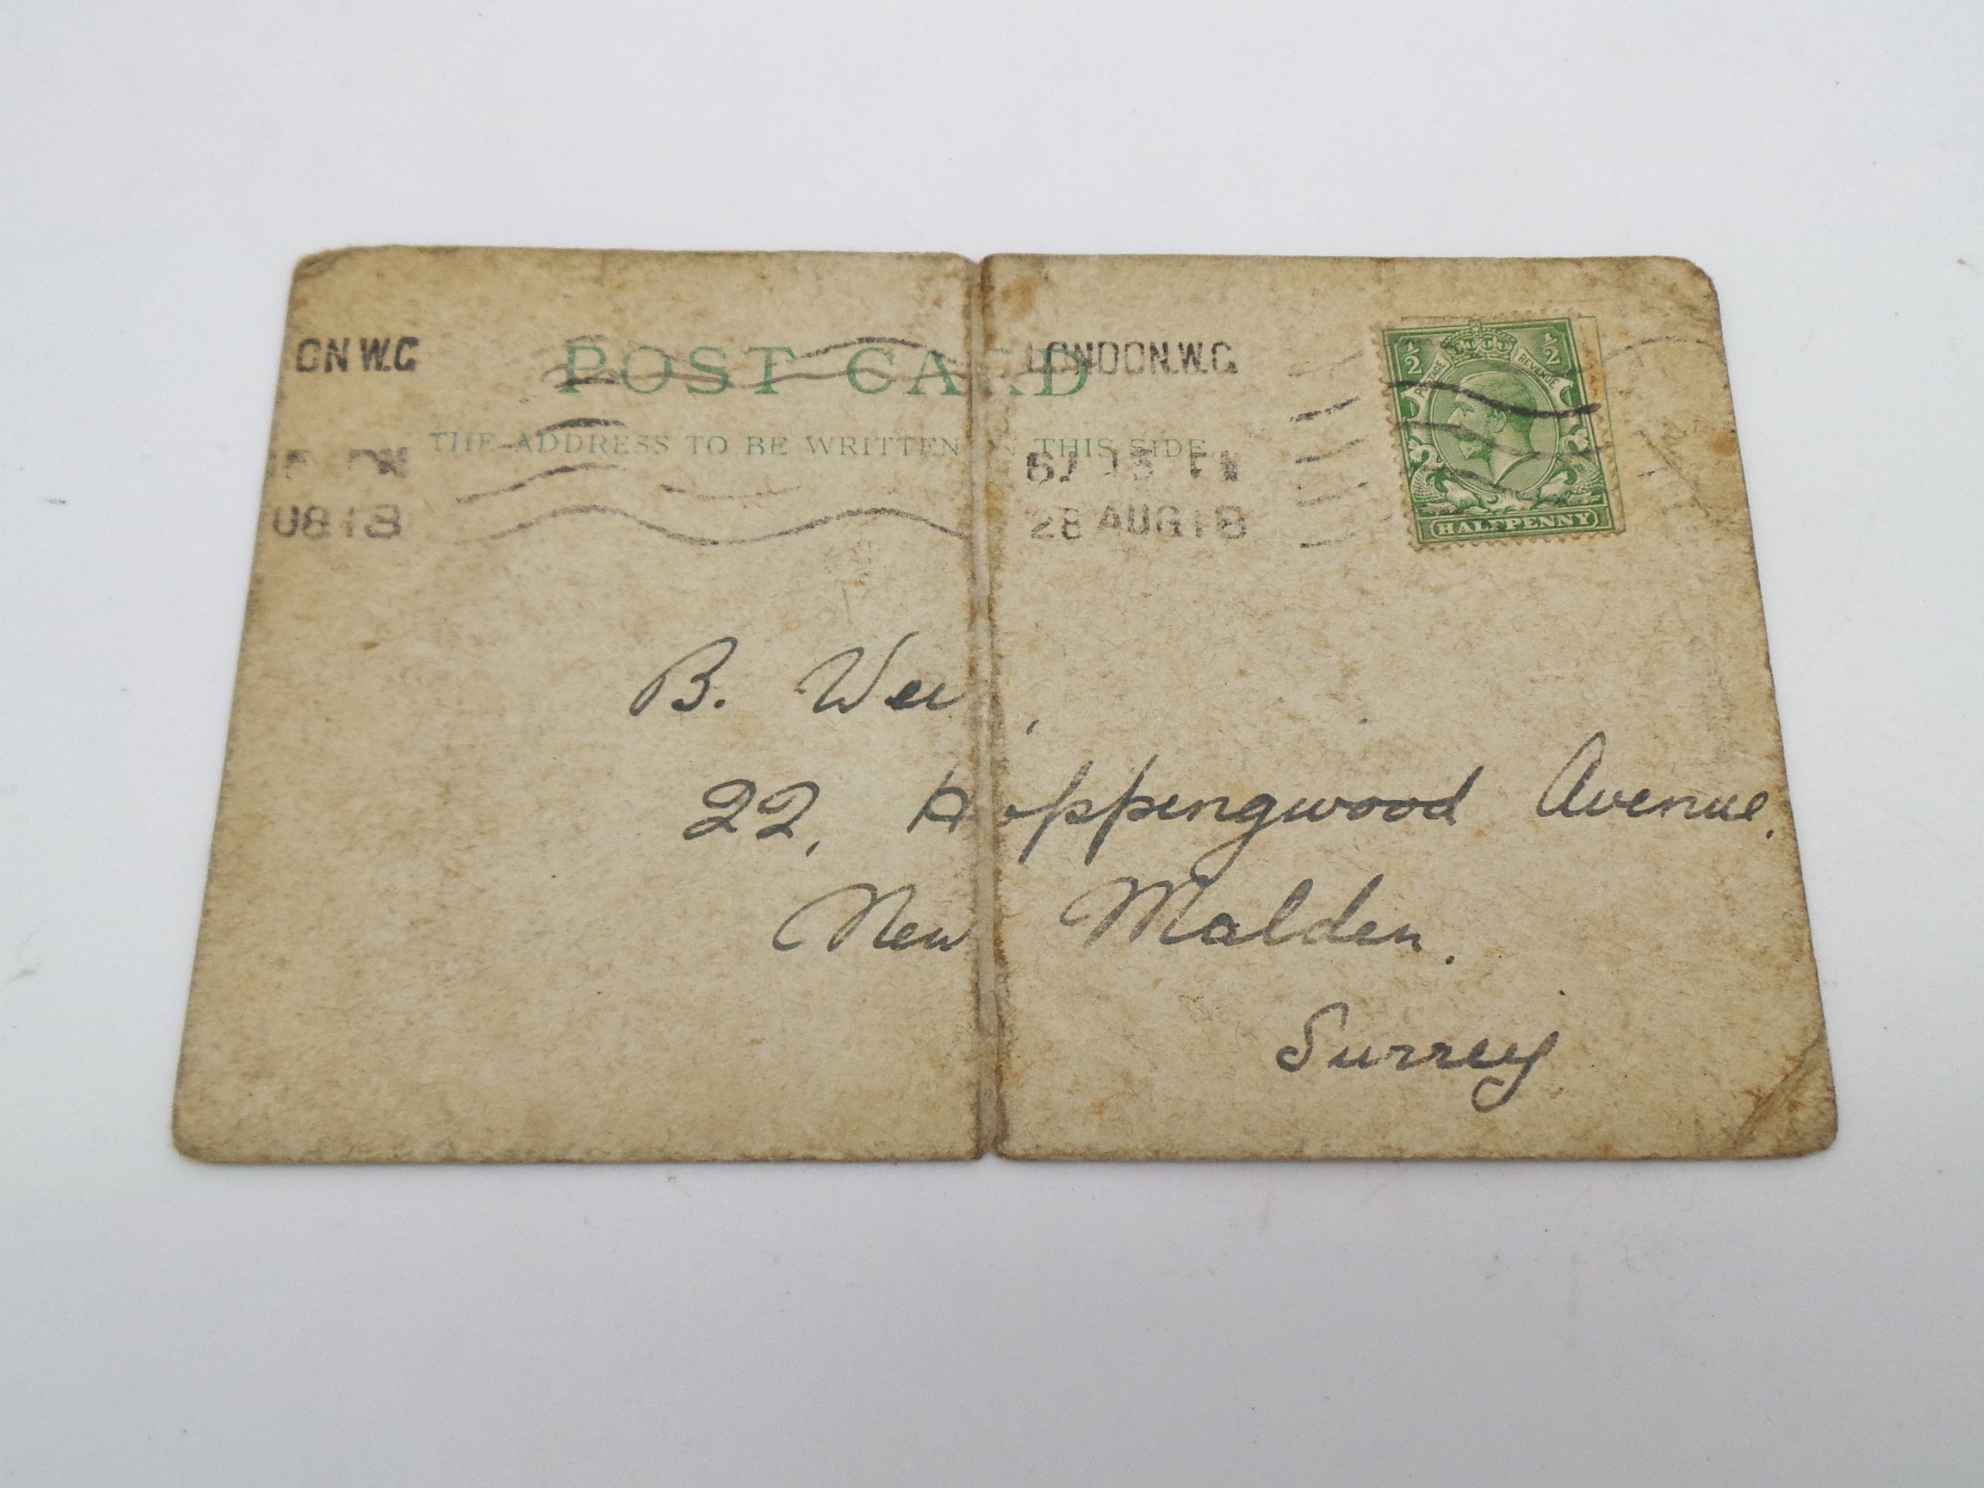 POST CARD
THE ADDRESS TO BE WRITTEN ON THIS SIDE
ON W.C
UG 18
LONDON.W.C.
28 AUG 18
½ POSTAGE REVENUE ½
HALFPENNY
B.
22, Hoppingwood Avenue.
New Malden.
Surrey